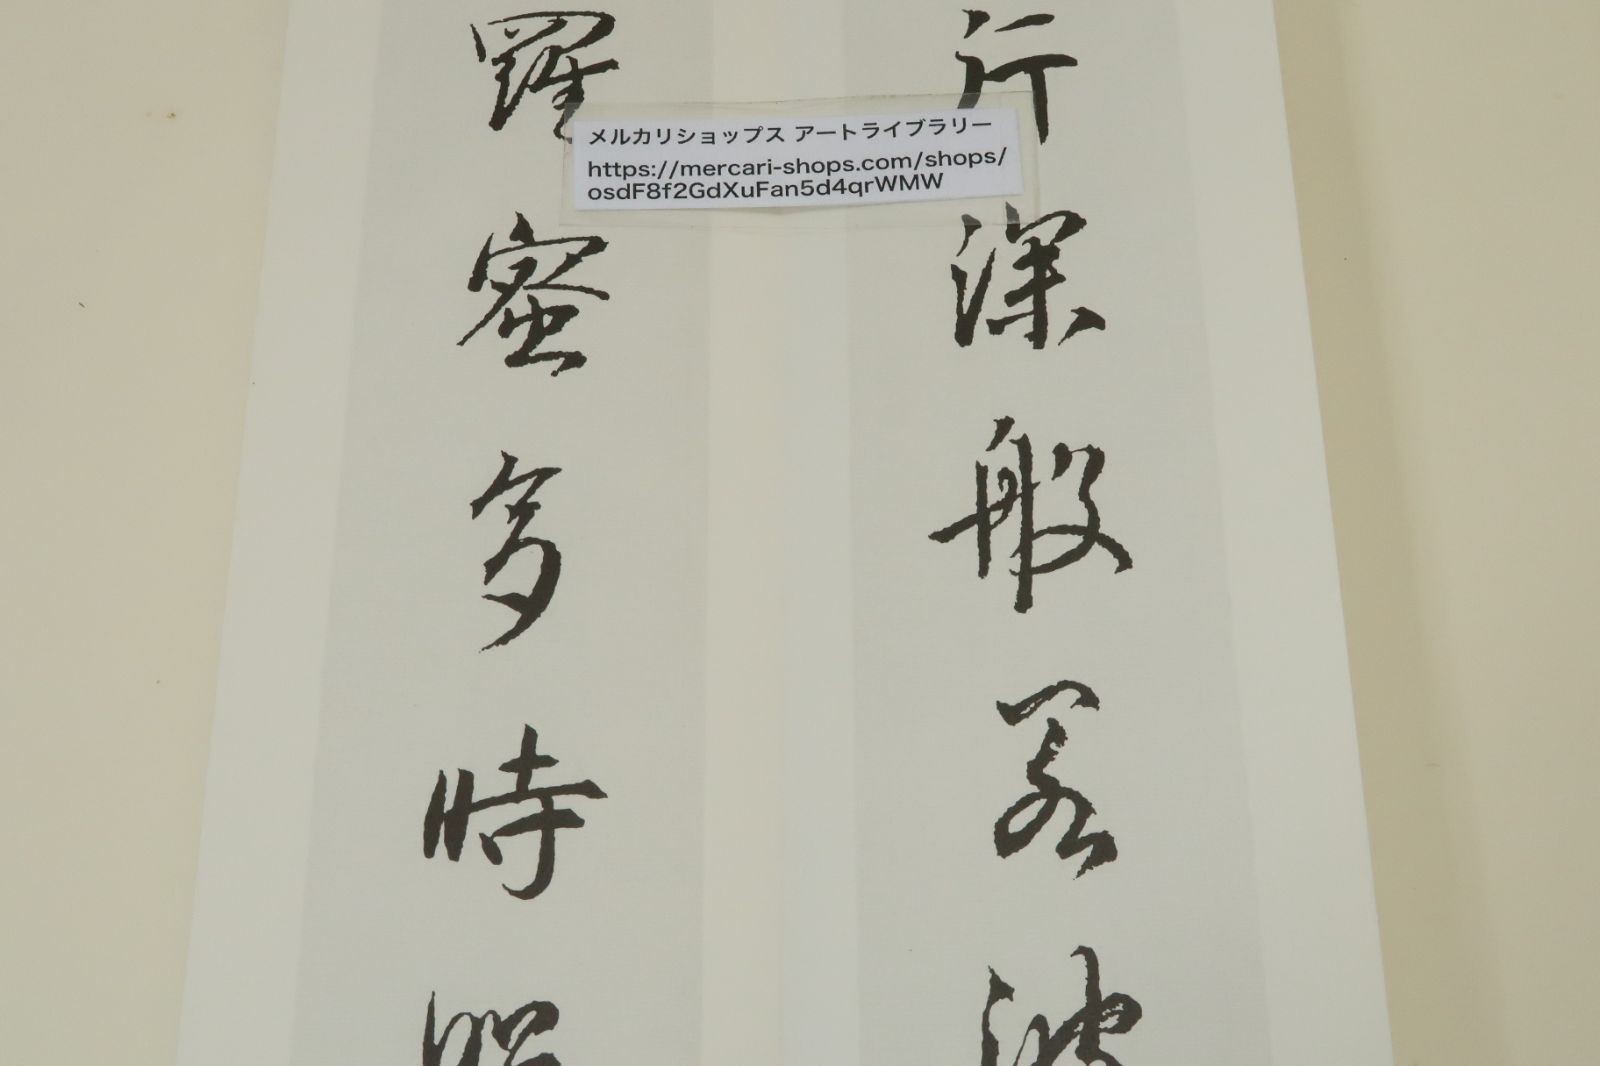 行深般若波
羅蜜多時照
メルカリショップス アートライブラリー
https://mercari-shops.com/shops/
osdF8f2GdXuFan5d4qrWMW